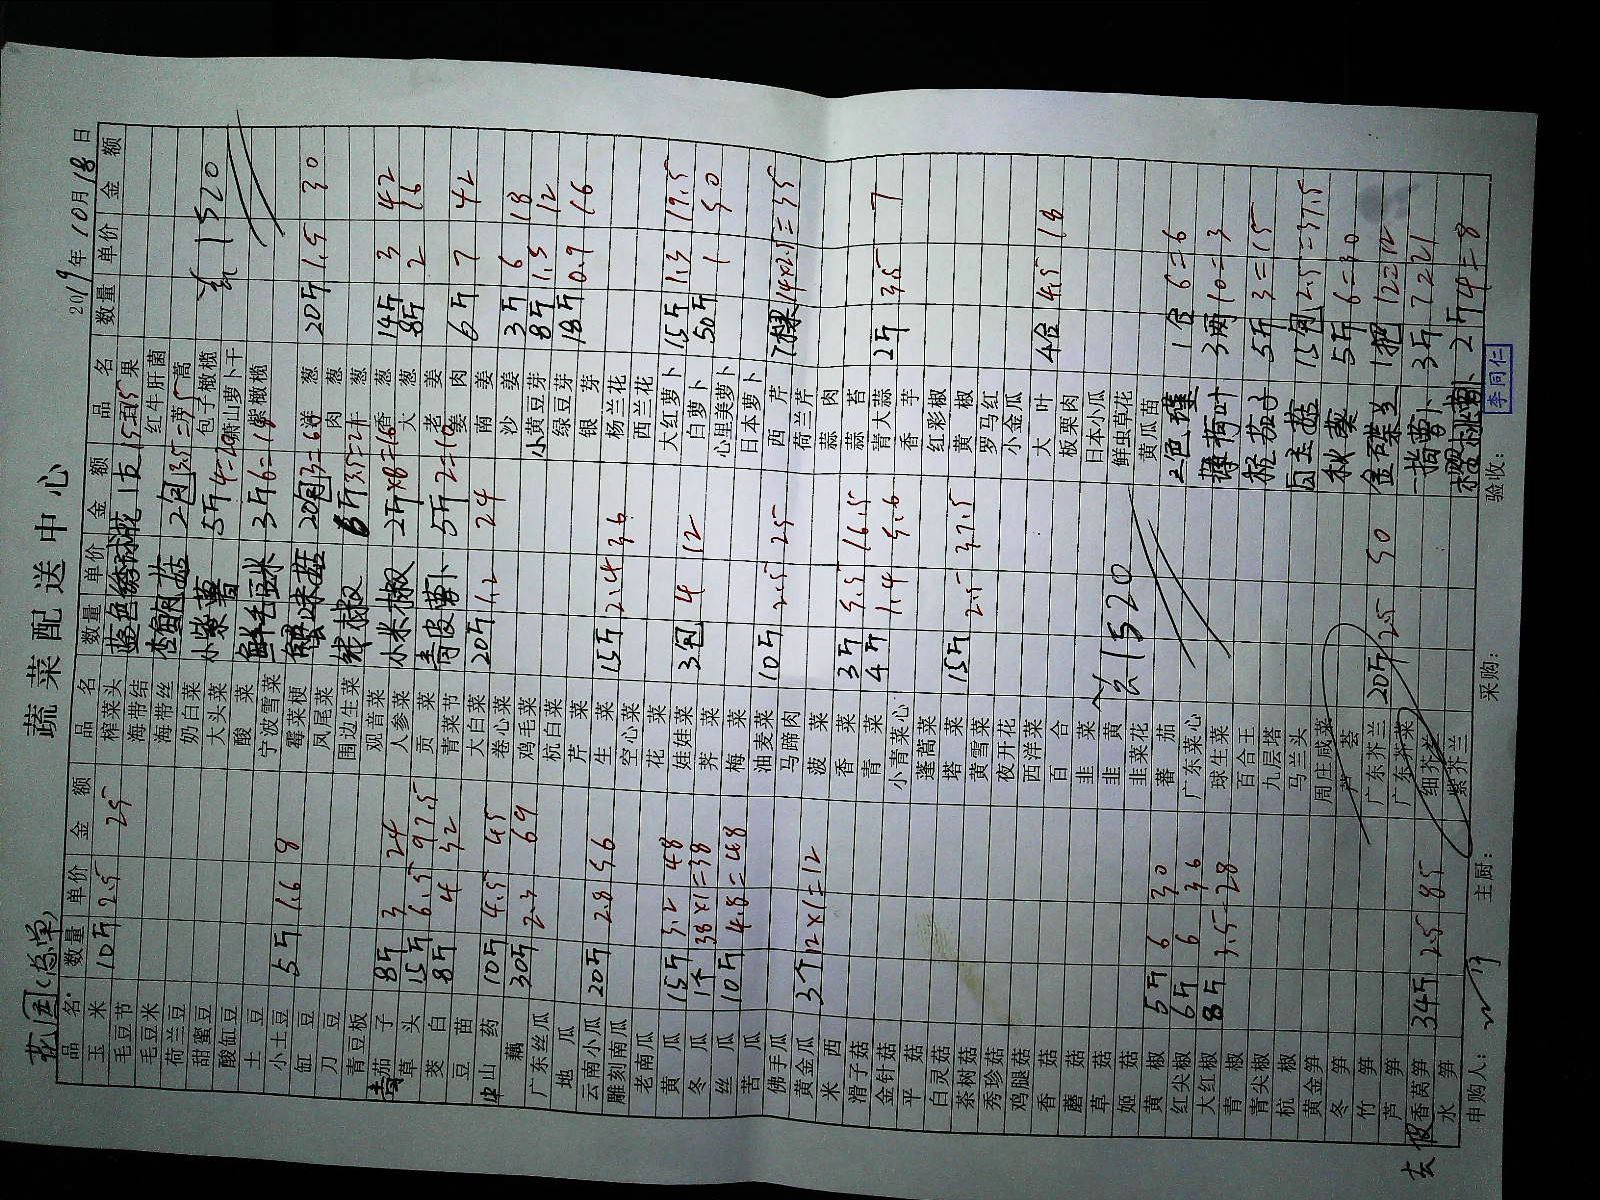 蔬菜配送中心
花园(总单)
2019年10月18日
品名 数量 单价 金额
玉米 10斤 2.5 25
毛豆节
毛豆米
荷兰豆
甜蜜豆
酸缸豆
土豆
小土豆 5斤 1.6 8
缸豆
刀豆
青豆板
青茄子 8斤 3 24
草头 15斤 6.5 97.5
茭白 8斤 4 32
豆苗
山药 10斤 4.5 45
藕 30斤 2.3 69
广东丝瓜
地瓜
云南小瓜 20斤 2.8 56
雕刻南瓜
老南瓜
黄瓜 15斤 3.2 48
冬瓜 1个 38×1=38
丝瓜 10斤 4.8=48
苦瓜
佛手瓜
黄金瓜 3个 12×1=12
米西
滑子菇
金针菇
平菇
白灵菇
茶树菇
秀珍菇
鸡腿菇
香菇
蘑菇
草菇
姬菇
黄椒 5斤 6 30
红尖椒 6斤 6 36
大红椒 8斤 3.5=28
青椒
青尖椒
杭椒
黄金笋
冬笋
竹笋
芦笋
去假香莴笋 34斤 2.5 85
水笋
品名 数量 单价 金额
榨菜头 蓝色绣球花 1支
海带结
海带丝 杏鲍菇 2包
奶白菜
大头菜 小紫薯 5斤 4=20
酸菜
宁波雪菜 鲜毛豆米 3斤 6=18
霉菜梗
凤尾菜 蟹味菇 20包 3=60
围边生菜
观音菜 线椒 6斤 3.5=21
人参菜 小米椒 2斤×8=16
贡菜
青菜节 青皮萝卜 5斤 2=10
大白菜 20斤 1.2 24
卷心菜
鸡毛菜
杭白菜
芹菜
生菜 15斤 2.4 36
空心菜
花菜
娃娃菜 3包 4 12
荠菜
梅菜
油麦菜 10斤 2.5 25
马蹄肉
菠菜
香菜 3斤 5.5 16.5
青菜 4斤 1.4 5.6
小青菜心
蓬蒿菜
塔菜 15斤 2.5 37.5
黄雪菜
夜开花
西洋菜
百合
韭菜
韭黄
韭菜花 1520
蕃茄
广东菜心
球生菜
百合王
九层塔
马兰头
周庄咸菜
芦荟
广东芥兰 20斤 2.5 50
广东芥菜
细芥兰
紫芥兰
品名 数量 单价 金额
果
红牛肝菌
蒿
包子橄榄
萧山萝卜干 1520
紫橄榄
洋葱 20斤 1.5 30
肉葱
葱
香葱 14斤 3 42
大葱 8斤 2 16
老姜
姜肉 6斤 7 42
南姜
沙姜 3斤 6 18
小黄豆芽 8斤 1.5 12
绿豆芽 18斤 0.9 16
银芽
杨兰花
西兰花
大红萝卜 15斤 1.3 19.5
白萝卜 50斤 1 50
心里美萝卜
日本萝卜
西芹 7棵 14×2.5=35
荷兰芹
蒜肉
蒜苔
青大蒜 2斤 3.5 7
香芋
红彩椒
黄椒
罗马红
小金瓜
大叶 4合 4.5 18
板栗肉
日本小瓜
鲜虫草花
黄瓜苗
三色堇 1合 6=6
薄荷叶 3两 10=3
茄子 5斤 3=15
白玉菇 15包 2.5=37.5
秋葵 5斤 6=30
金碟兰 1把 12=12
一指萝卜 3斤 7 21
樱桃萝卜 2斤 4=8
申购人:
主厨:
采购:
验收: 李同仁